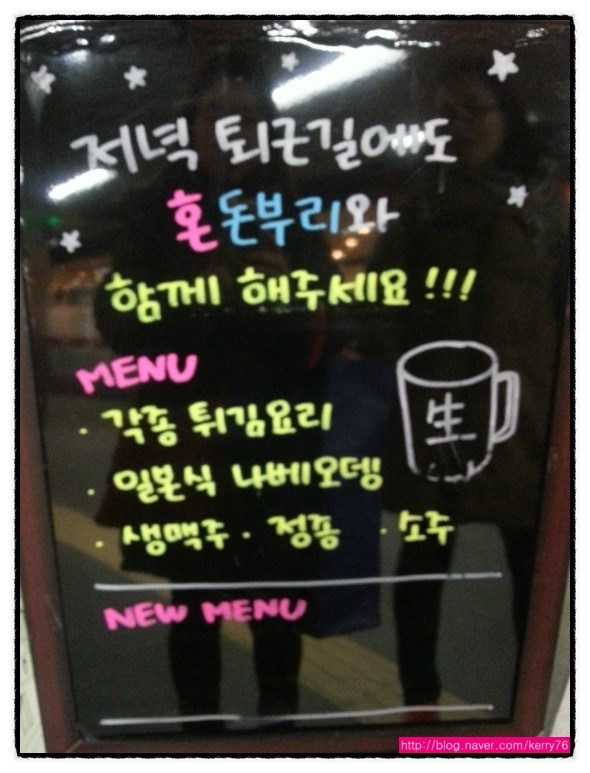 저녁 퇴근길에도
혼돈부리와
함께 해주세요!!!
MENU
· 각종 튀김요리
· 일본식 나베오뎅
· 생맥주 · 정종 · 소주
生
NEW MENU
http://blog.naver.com/kerry76